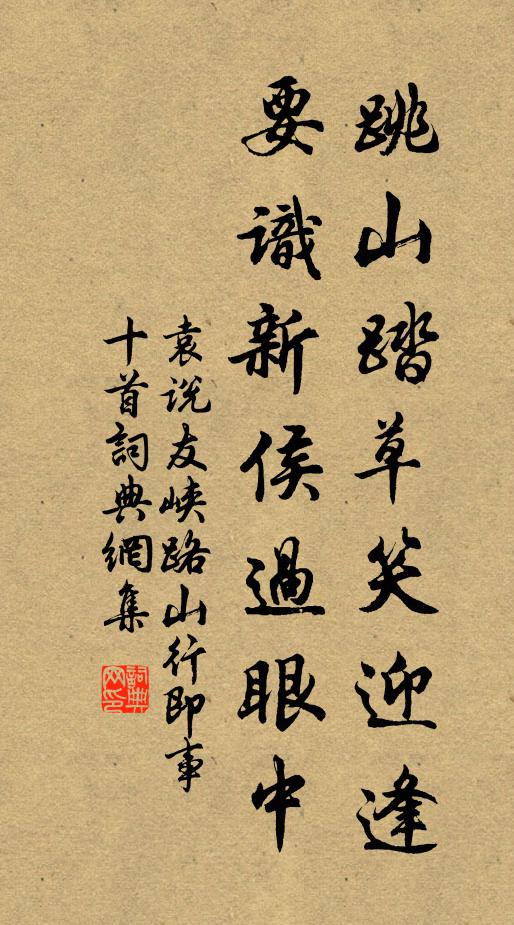 跳山踏草笑迎逢
要識新侯過眼中
袁说友峡路山行即事
十首詞典網集
詞典
网印